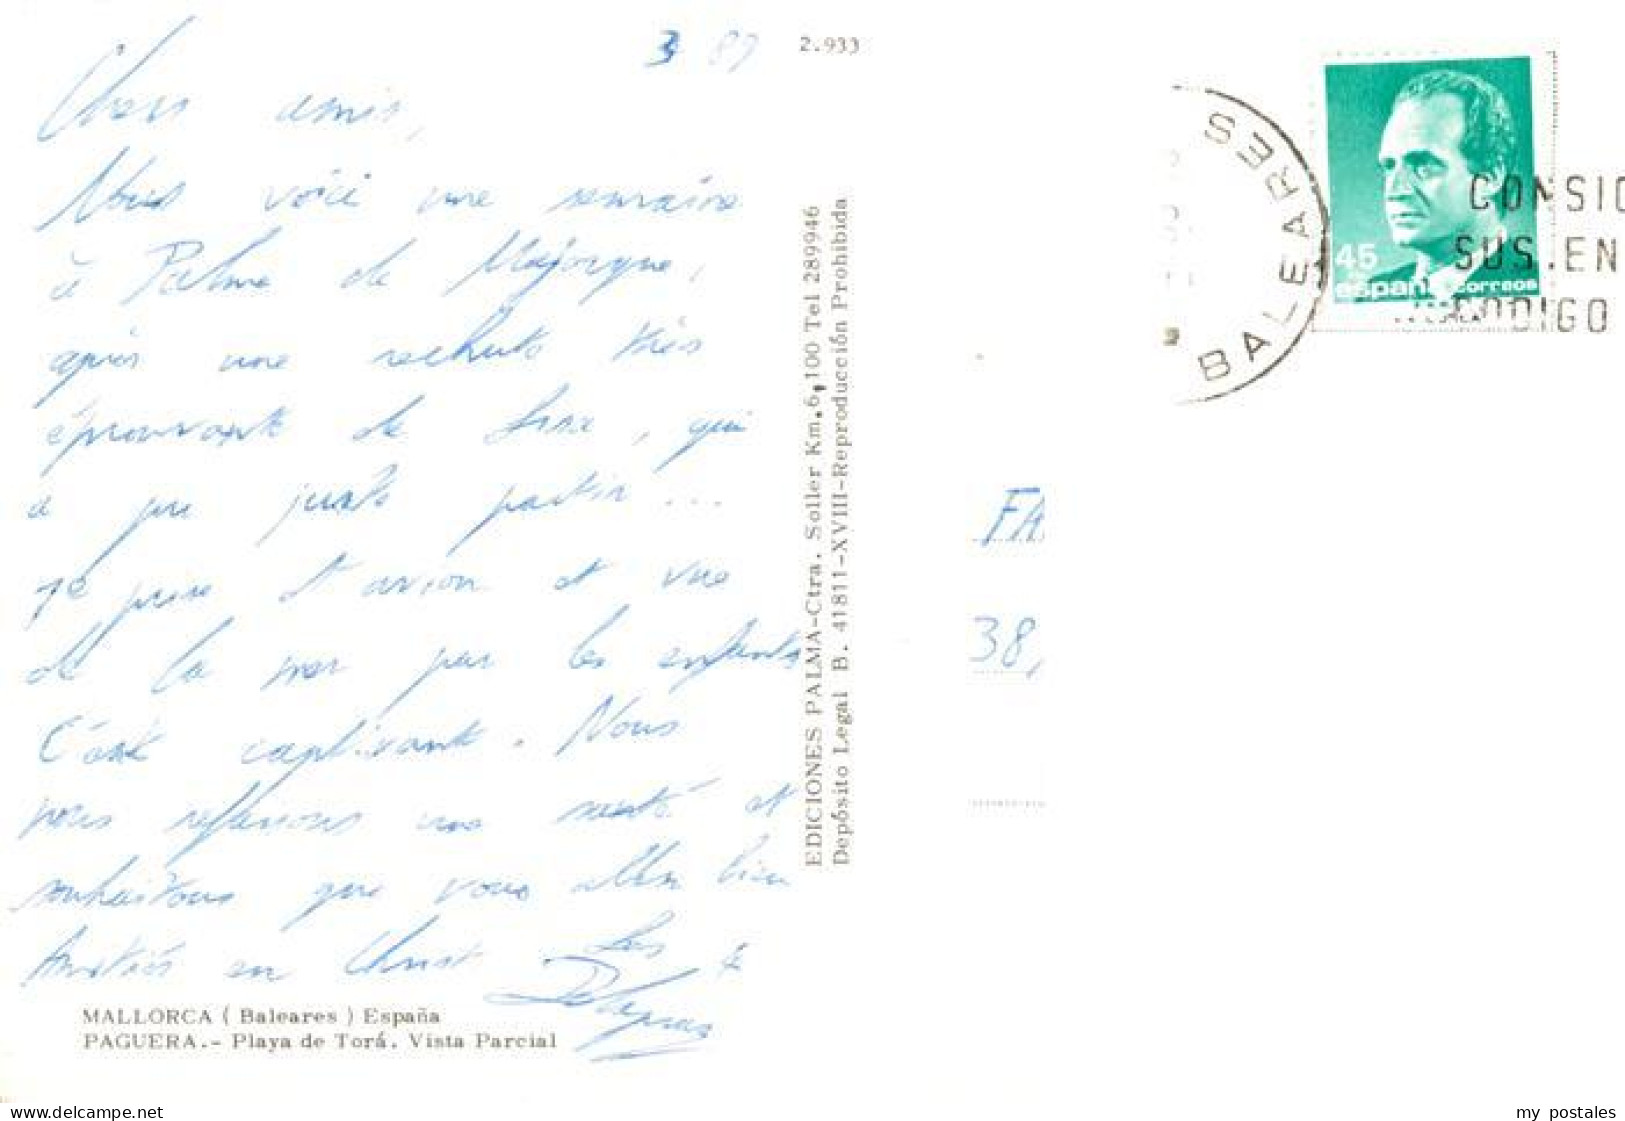 3 89
2.933
Chers amis,
Nous voici une semaine
à Palma de Majorque,
après une rechute très
éprouvante de , qui
a pu juste partir ...
1e prise d'avion et vue
de la mer par les enfants
C'est captivant. Nous
nous refaisons une santé et
souhaitons que vous allez bien
Amitiés en Christ. Les
MALLORCA ( Baleares ) España
PAGUERA.- Playa de Torá. Vista Parcial
EDICIONES PALMA-Ctra. Soller Km.6,100 Tel 289946
Depósito Legal B. 41811-XVIII-Reproducción Prohibida
BALEARES
45
españa correos
CONSIG
SUS.EN
CODIGO
FA
38,
www.delcampe.net
my_postales